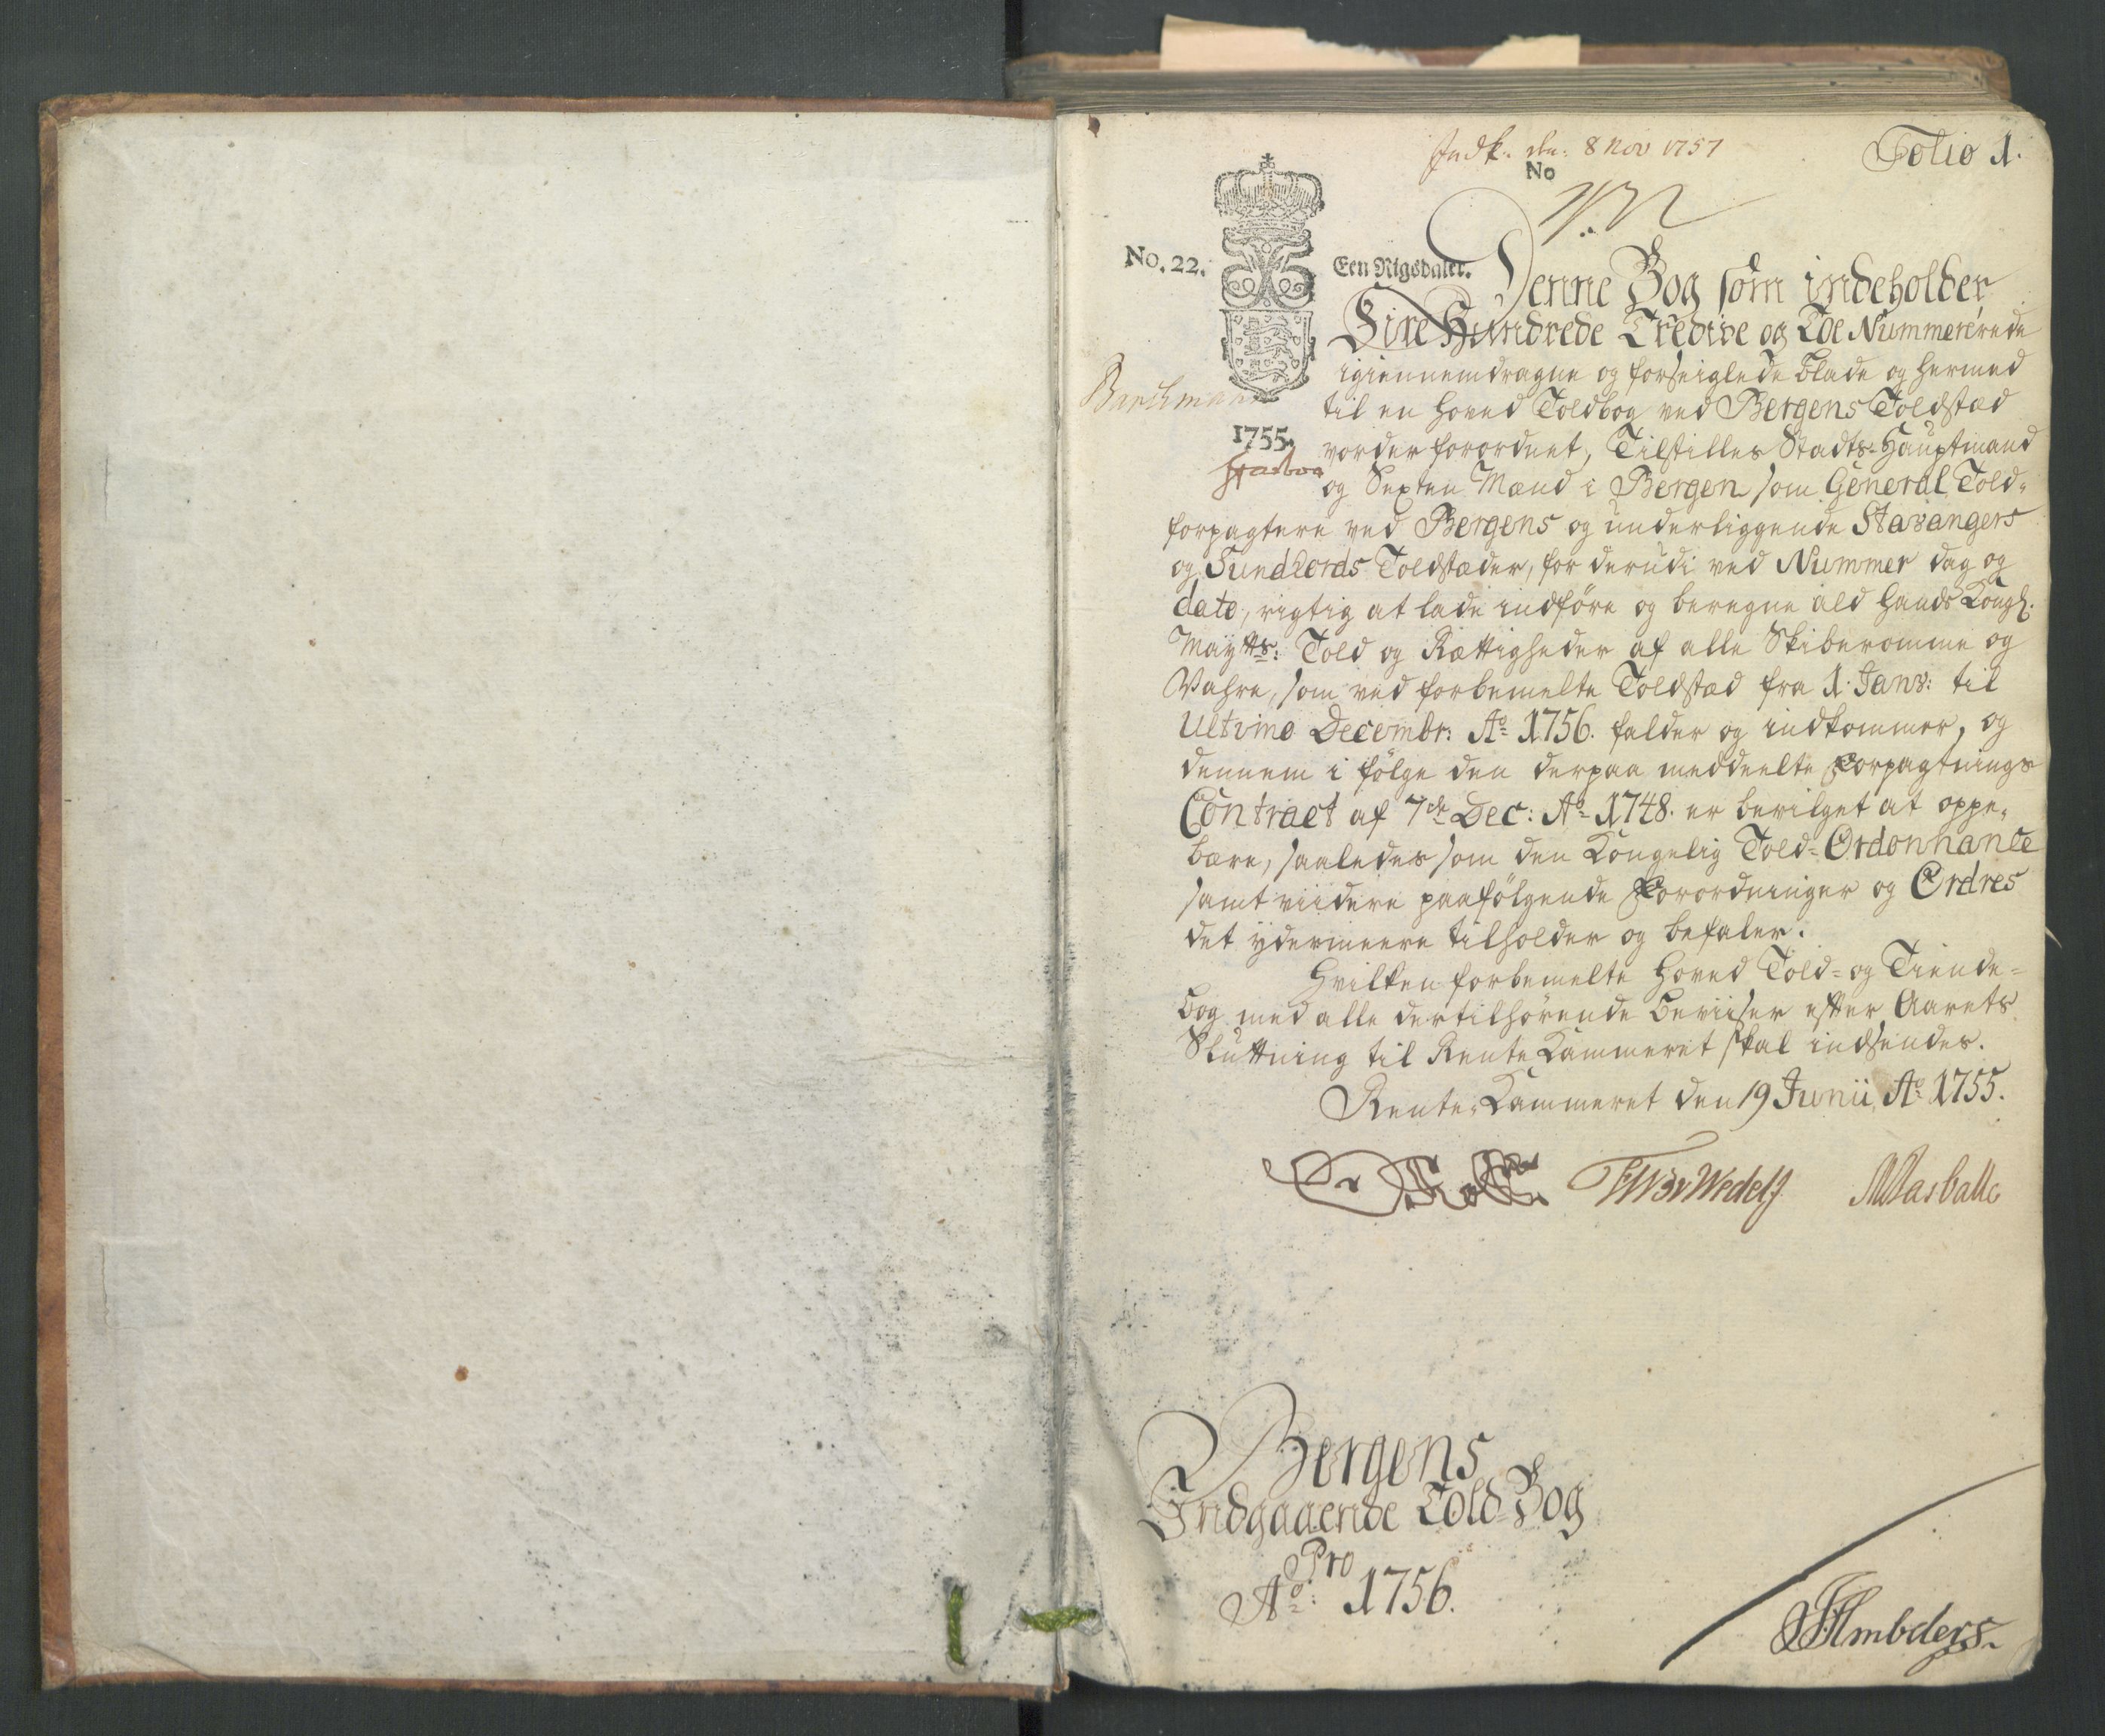 Indk: den: 8 Nov 1757
Folio 1.
No
No. 22.
Een Rigsdaler.
Denne Bog som indeholder
Fire Hundrede Tredive og Toe Nummererede
igiennemdragne og forseiglede blade og hermed
til en Hoved Toldbog ved Bergens Toldstæd
1755.
vorder forordnet, Tilstilles Stadts-Hauptmand
og Sexten Mænd i Bergen som General Told-
forpagtere ved Bergens og underliggende Stavangers
og Sundlords Toldstæder, for derudi ved Nummer dag og
dato, rigtig at lade indföre og beregne ald Hands Kongl.
Maytts: Told og Rættigheder af alle Skiberomme og
Vahre, som ved forbemelte Toldstæd fra 1. Janv: til
Ultimo Decembr: Ao 1756. falder og indkommer, og
dennem i fölge den derpaa meddeelte Forpagtnings
Contract af 7de Dec: Ao 1748. er bevilget at oppe-
bære, saaledes som den Kongelig Told-Ordonnance
samt viidere paafölgende Forordninger og Ordres
det ydermeere tilholder og befaler.
Hvilken forbemelte Hoved Told- og Tiende-
bog med alle dertilhörende Beviiser efter Aarets
Sluttning til Rente Kammeret skal indsendes.
Rente-Kammeret den 19 Junii Ao 1755.
Bergens
Indgaaende Told-Bog
Pro
Ao: 1756.